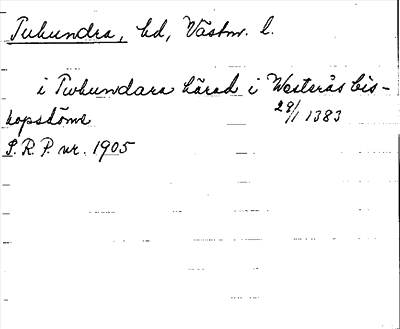 Tuhundra, hd, Västm. l.
i Twhundara härad i Westerås bis-
kopsdöme 29/1 1383
S.R.P. nr. 1905